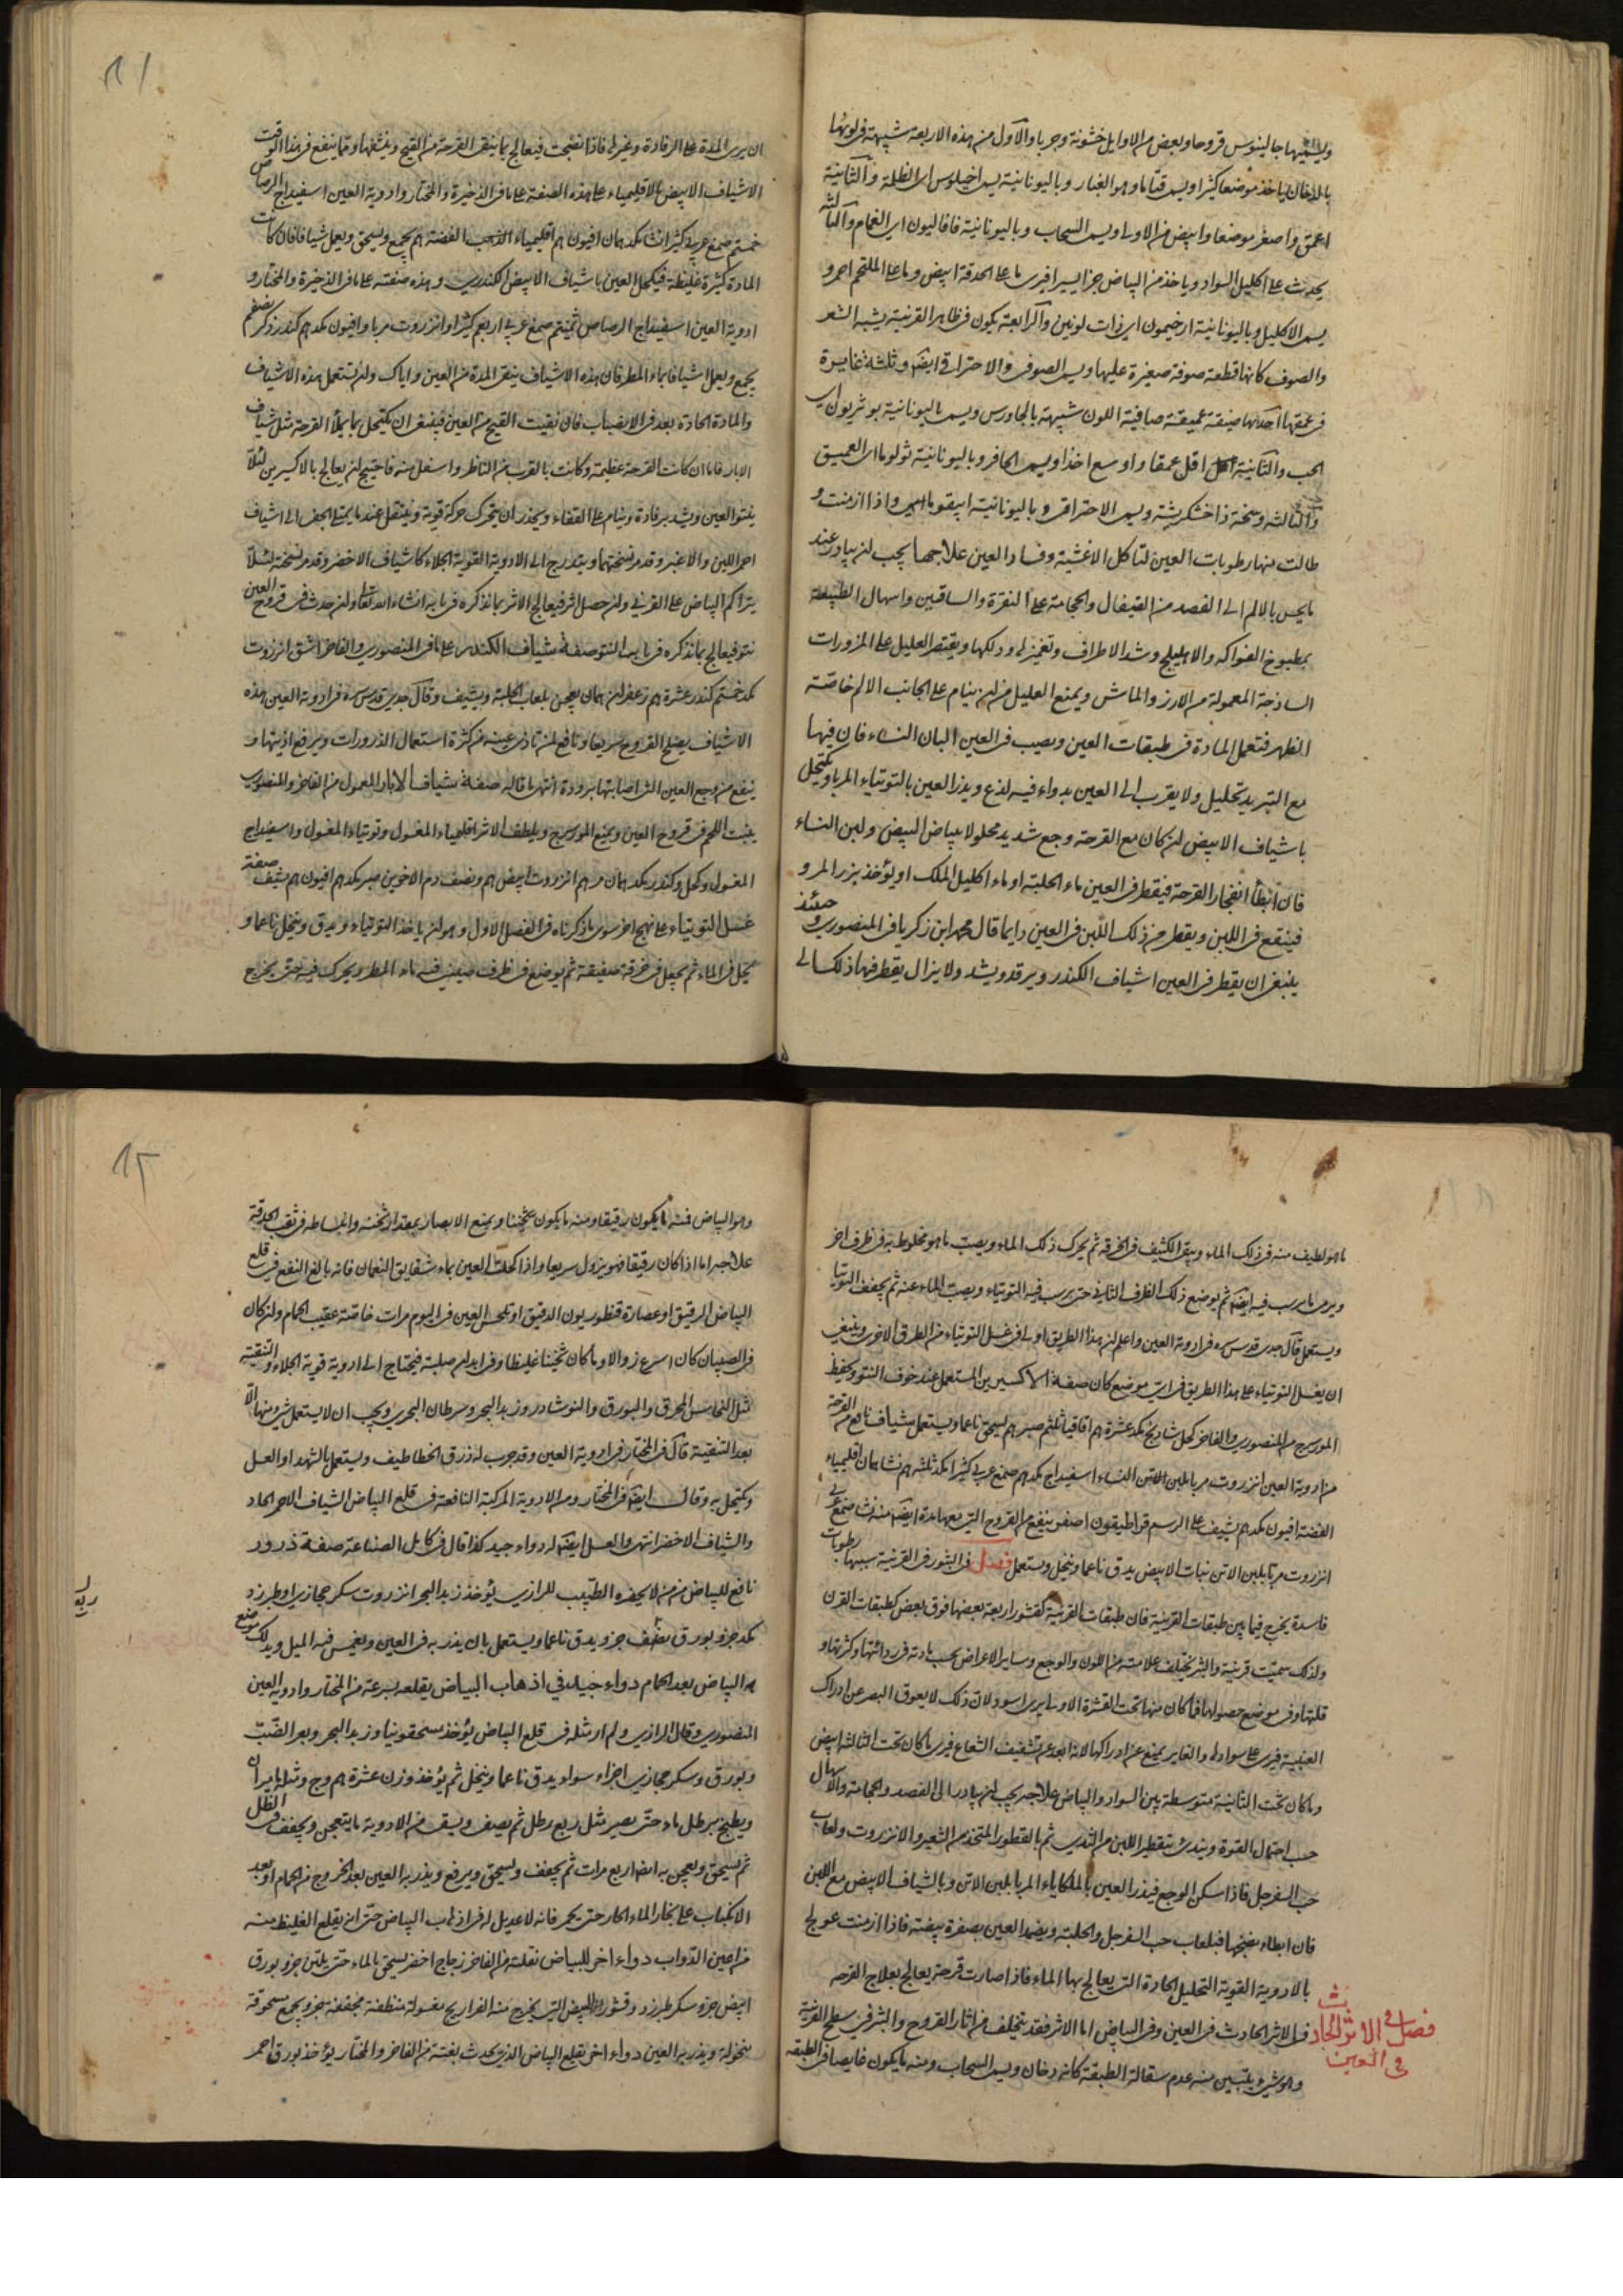 ويسميها جالينوس قروحا وبعض من الاوايل خشونة وجربا والاول من هذه الاربعة شبيهة في لونها
بالدخان ياخذ موضعا كثيرا ويسمى قتاما وهو الغبار وباليونانية يسمى اخيلوس اى الظلمة والثانية
اعمق واصغر موضعا وابيض من الاولى ويسمى السحاب وباليونانية فافاليون اى الغمام والثالثة
يحدث على اكليل السواد وياخذ من البياض جزا يسيرا فيرى ما على الحدقة ابيض وما على الملتحم احمر و
يسمى الاكليلى وباليونانية ارخيمون اى ذات لونين والرابعة يكون فى ظاهر القرنية يشبه الشعر
والصوف كانها قطعة صوفة صغيرة عليها ويسمى الصوفى والاحتراقى ايضا وثلثة غايرة
فى عمقها احدها ضيقة عميقة صافية اللون شبيهة بالجاورس ويسمى باليونانية بوثريون اى
الجب والثانية اقل عمقا واوسع اخذا ويسمى الحافر وباليونانية ثولوما اى العميق
والثالثة وسخة ذا خشكريشة ويسمى الاحتراق وباليونانية ابيقوما اى واذا ازمنت و
طالت منها رطوبات العين لتاكل الاغشية وفساد العين علاجها يجب ان يبادر عند
ما يحس بالالم الى الفصد من القيفال والحجامة على النقرة والساقين واسهال الطبيعة
بمطبوخ الفواكه والاهليلج وشد الاطراف وتغميزها ودلكها ويقتصر العليل على المزورات
الساذجة المعمولة من الارز والماش ويمنع العليل من ان ينام على الجانب الالم خاصة
الظهر فتعمل المادة فى طبقات العين ويصب فى العين البان النساء فان فيها
مع التبريد تحليل ولا يقرب الى العين بدواء فيه لذع ويذر العين بالتوتياء المربا ويكتحل
باشياف الابيض ان كان مع القرحة وجع شديد محلولا ببياض البيض ولبن النساء
فان ابطأ انفجار القرحة فيقطر فى العين ماء الحلبة او ماء اكليل الملك او يؤخذ بزر المرو
فينقع فى اللبن ويقطر من ذلك اللبن فى العين دايما قال محمد ابن زكريا فى المنصورى وحينئذ
ينبغى ان يقطر فى العين اشياف الكندر ويرفد ويشد ولا يزال يقطر فيها ذلك الى
ان يرى المدة على الرفادة وغيرها فاذا نضجت فيعالج بما ينقى القرحة من القيح وينشفها ومما ينفع فى هذا الوقت
الاشياف الابيض بالاقليمياء على هذه الصفة على ما فى الذخيرة والمختار وادوية العين اسفيداج الرصاص
خمسة صمغ عربى كثيرا نشا مكد همان افيون اقليمياء الذهب الفضة يجمع ويسحق ويعمل شيافا فان كانت
المادة كثيرة غليظة فيكحل العين باشياف الابيض الكندرى وهذه صفته على ما فى الذخيرة والمختار و
ادوية العين اسفيداج الرصاص صمغ عربى اربعة كثيرا وانزروت مربا وافيون كندر ذكر
يجمع ويعمل اشيافا بماء المطر فان هذه الاشياف ينقى المدة من العين واياك وان تستعمل هذه الاشياف
والمادة الحادة بعد فى الانصباب فان نقيت القيح من العين فينبغى ان يكتحل بما يملأ القرحة مثل شياف
الابار فاما ان كانت القرحة عظيمة وكانت بالقرب من الناظر واسفل منه فاحتيج ان يعالج بالاكسيرين لئلا
ينتو العين ويشد برفادة وينام على القفاء ويحذر ان يتحرك حركة قوية وينتقل عند ما يمتلى الحفر الى اشياف
احمر اللين والاغبر وقد مر نسختهما ويتدرج الى الادوية القوية الجلاء كاشياف الاخضر وقد مر نسخته لئلا
يتراكم البياض على القرنى وان حصل اثر فيعالج الاثر بما نذكره فى بابه انشاء الله تعالى وان حدث فى قروح العين
نتو فيعالج بما نذكره فى باب النتو صفة شياف الكندر على ما فى المنصورى والفاخر اشق انزروت
كندر عشرة زعفران همان يعجن بلعاب الحلبة ويشيف وقال جدى قدس سره فى ادوية العين هذه
الاشياف يصلح القروح سريعا ونافع لمن تاذى عينه من كثرة استعمال الذرورات ويرفع اذيتها و
ينفع من وجع العين التى اصابتها برودة انتهى ما قاله صفة شياف الابار المعمول من الفاخر والمنصورى
ينبت اللحم فى قروح العين ويمنع المورسرج ويلطف الاثر اقليمياء المغسول وتوتياء المغسول واسفيداج
المغسول وكحل وكندر مكد همان مر انزروت ابيض ونصف دم الاخوين صبر افيون يشيف صفة
غسل التوتياء على نهج اخر سوى ما ذكرناه فى الفصل الاول وهو ان ياخذ التوتياء ويدق وينخل ناعما و
يحل فى الماء ثم يجعل فى خرقة صفيقة ثم يوضع فى ظرف صينى فيه ماء المطر ويحرك فيه حتى يخرج
ما هو لطيف منه فى ذلك الماء ويبقى الكثيف فى الخرقة ثم يحرك ذلك الماء ويصب ما هو مخلوط به فى ظرف اخر
ويرمى ما يرسب فيه ايضا ثم يوضع ذلك الظرف الثانى حتى يرسب فيه التوتياء ويصب الماء عنه ثم يجفف التوتيا
ويستعمل قال جدى قدس سره فى ادوية العين واعلم ان هذا الطريق اولى فى غسل التوتياء من الطرق الاخرى وينبغى
ان يغسل التوتياء على هذا الطريق فى اى موضع كان صفة الاكسيرين المستعمل عند خوف النتو ويحفظ
المورسرج من المنصورى والفاخر كحل شاذنج مكد عشرة اقاقيا صبر يسحق ناعما ويستعمل شياف نافع من القرحة
من ادوية العين انزروت مربا بلبن الاتن النساء اسفيداج صمغ عربى كثيرا مكد ثلثة نشا همان اقليمياء
الفضة افيون يشيف على الرسم قراطيقون اصفر ينفع من القروح التى معها مدة ايضا منه نشا صمغ عربى
انزروت مربا بلبن الاتن نبات الابيض يدق ناعما وينخل ويستعمل فصل فى البثور فى القرنية سببها رطوبات
فاسدة يخرج فيما بين طبقات القرنية فان طبقات القرنية كقشور اربعة بعضها فوق بعض كطبقات القرن
ولذلك سميت قرنية والبثر يختلف علامته من اللون والوجع وساير الاعراض بحسب مادته فى ردائتها وكثرتها و
قلتها وفى موضع حصولها فما كان منها تحت القشرة الاولى يرى اسود لان ذلك لا يعوق البصر عن ادراك
العنبية فيرى على سوادها والغاير يمنع عن ادراكها لانه ابعد عن تشفيف الشعاع فيرى ما كان تحت الثالثة ابيض
وما كان تحت الثانية متوسطة بين السواد والبياض علاجه يجب ان يبادر الى الفصد والحجامة والاسهال
حسب احتمال القوة ويبتدى بتقطير اللبن من الثدى ثم بالقطور المتخذ من الشعير والانزروت ولعاب
حب السفرجل فاذا سكن الوجع فيذر العين بالملكاياء المربا بلبن الاتن وبالشياف الابيض مع اللبن
فان ابطاء نضجها فبلعاب حب السفرجل والحلبة ويضمد العين بصفرة بيضة فاذا ازمنت عولج
بالادوية القوية التحليل الحادة التى يعالج بها الماء فاذا صارت قرحة يعالج بعلاج القرحة
فصل فى الاثر الحادث فى العين
فى الاثر الحادث فى العين وفى البياض اما الاثر فقد يتخلف من اثار القروح والبثر فى سطح القرنية
وهو شىء يتبين منه عدم سقالة الطبقة كانه دخان ويسمى السحاب ومنه ما يكون غايصا فى الطبقة
وهو البياض فمنه ما يكون رقيقا ومنه ما يكون ثخينا ويمنع الابصار بمقدار ثخنه وانبساطه فى ثقب الحدقة
علاجه اما اذا كان رقيقا فهو يزول سريعا واذا كحلت العين بماء شقايق النعمان فانه بالغ النفع فى قلع
البياض الرقيق او عصارة قنطوريون الدقيق او تلحس العين فى اليوم مرات خاصة عقيب الحمام وان كان
فى الصبيان كان اسرع زوالا وما كان ثخينا غليظا وفى ابدان صلبة فيحتاج الى ادوية قوية الجلاء والتنقية
مثل النحاس المحرق والبورق والنوشادر وزبد البحر وسرطان البحرى ويجب ان لا يستعمل شىء منها الا
بعد التنقية قال فى المختار فى ادوية العين وقد جرب له ذرق الخطاطيف ويستعمل بالشهد او العسل
ويكتحل به وقال ايضا فى المختار ومن الادوية المركبة النافعة فى قلع البياض الشياف الاحمر الحاد
والشياف الاخضر انتهى والعسل ايضا له دواء جيد كذا قال فى كامل الصناعة صفة ذرور
نافع للبياض من من لا يحضره الطبيب للرازى يؤخذ زبد البحر انزروت سكر حجازى او طبرزد
مكد جزو بورق نصف جزو يدق ناعما ويستعمل بان يذر به فى العين ويغمس فيه الميل ويدلك موضع
به البياض بعد الحمام دواء جيد فى اذهاب البياض يقلعه بسرعة من المختار وادوية العين
المنصورى وقال الرازى ولم ار مثله فى قلع البياض يؤخذ مسحقونيا وزبد البحر وبعر الضب
وبورق وسكر حجازى اجزاء سواء ويدق ناعما وينخل ثم يؤخذ وزن عشرة وج ومثله ماميران
ويطبخ برطل ماء حتى يصير مثل ربع رطل ثم يصفى ويسقى من الادوية ما يتعجن ويجفف فى الظل
ثم يسحق ويعجن به ايضا اربع مرات ثم يجفف ويسحق ويرفع ويذر به العين بعد الخروج من الحمام او بعد
الانكباب على بخار الماء الحار حتى يحمر فانه لا عديل له فى اذهاب البياض حتى انه يقلع الغليظ منه
من اعين الدواب دواء اخر للبياض نقلته من الفاخر زجاج اخضر يسحق بالماء حتى يلين جزو بورق
ابيض جزو سكر طبرزد وقشور البيض التى يخرج منه الفراريج مغسولة منظفة مجففة جزو يجمع مسحوقة
منخولة ويذر به العين دواء اخر يقلع البياض الذى يحدث بغتة من الفاخر والمختار يؤخذ بورق احمر